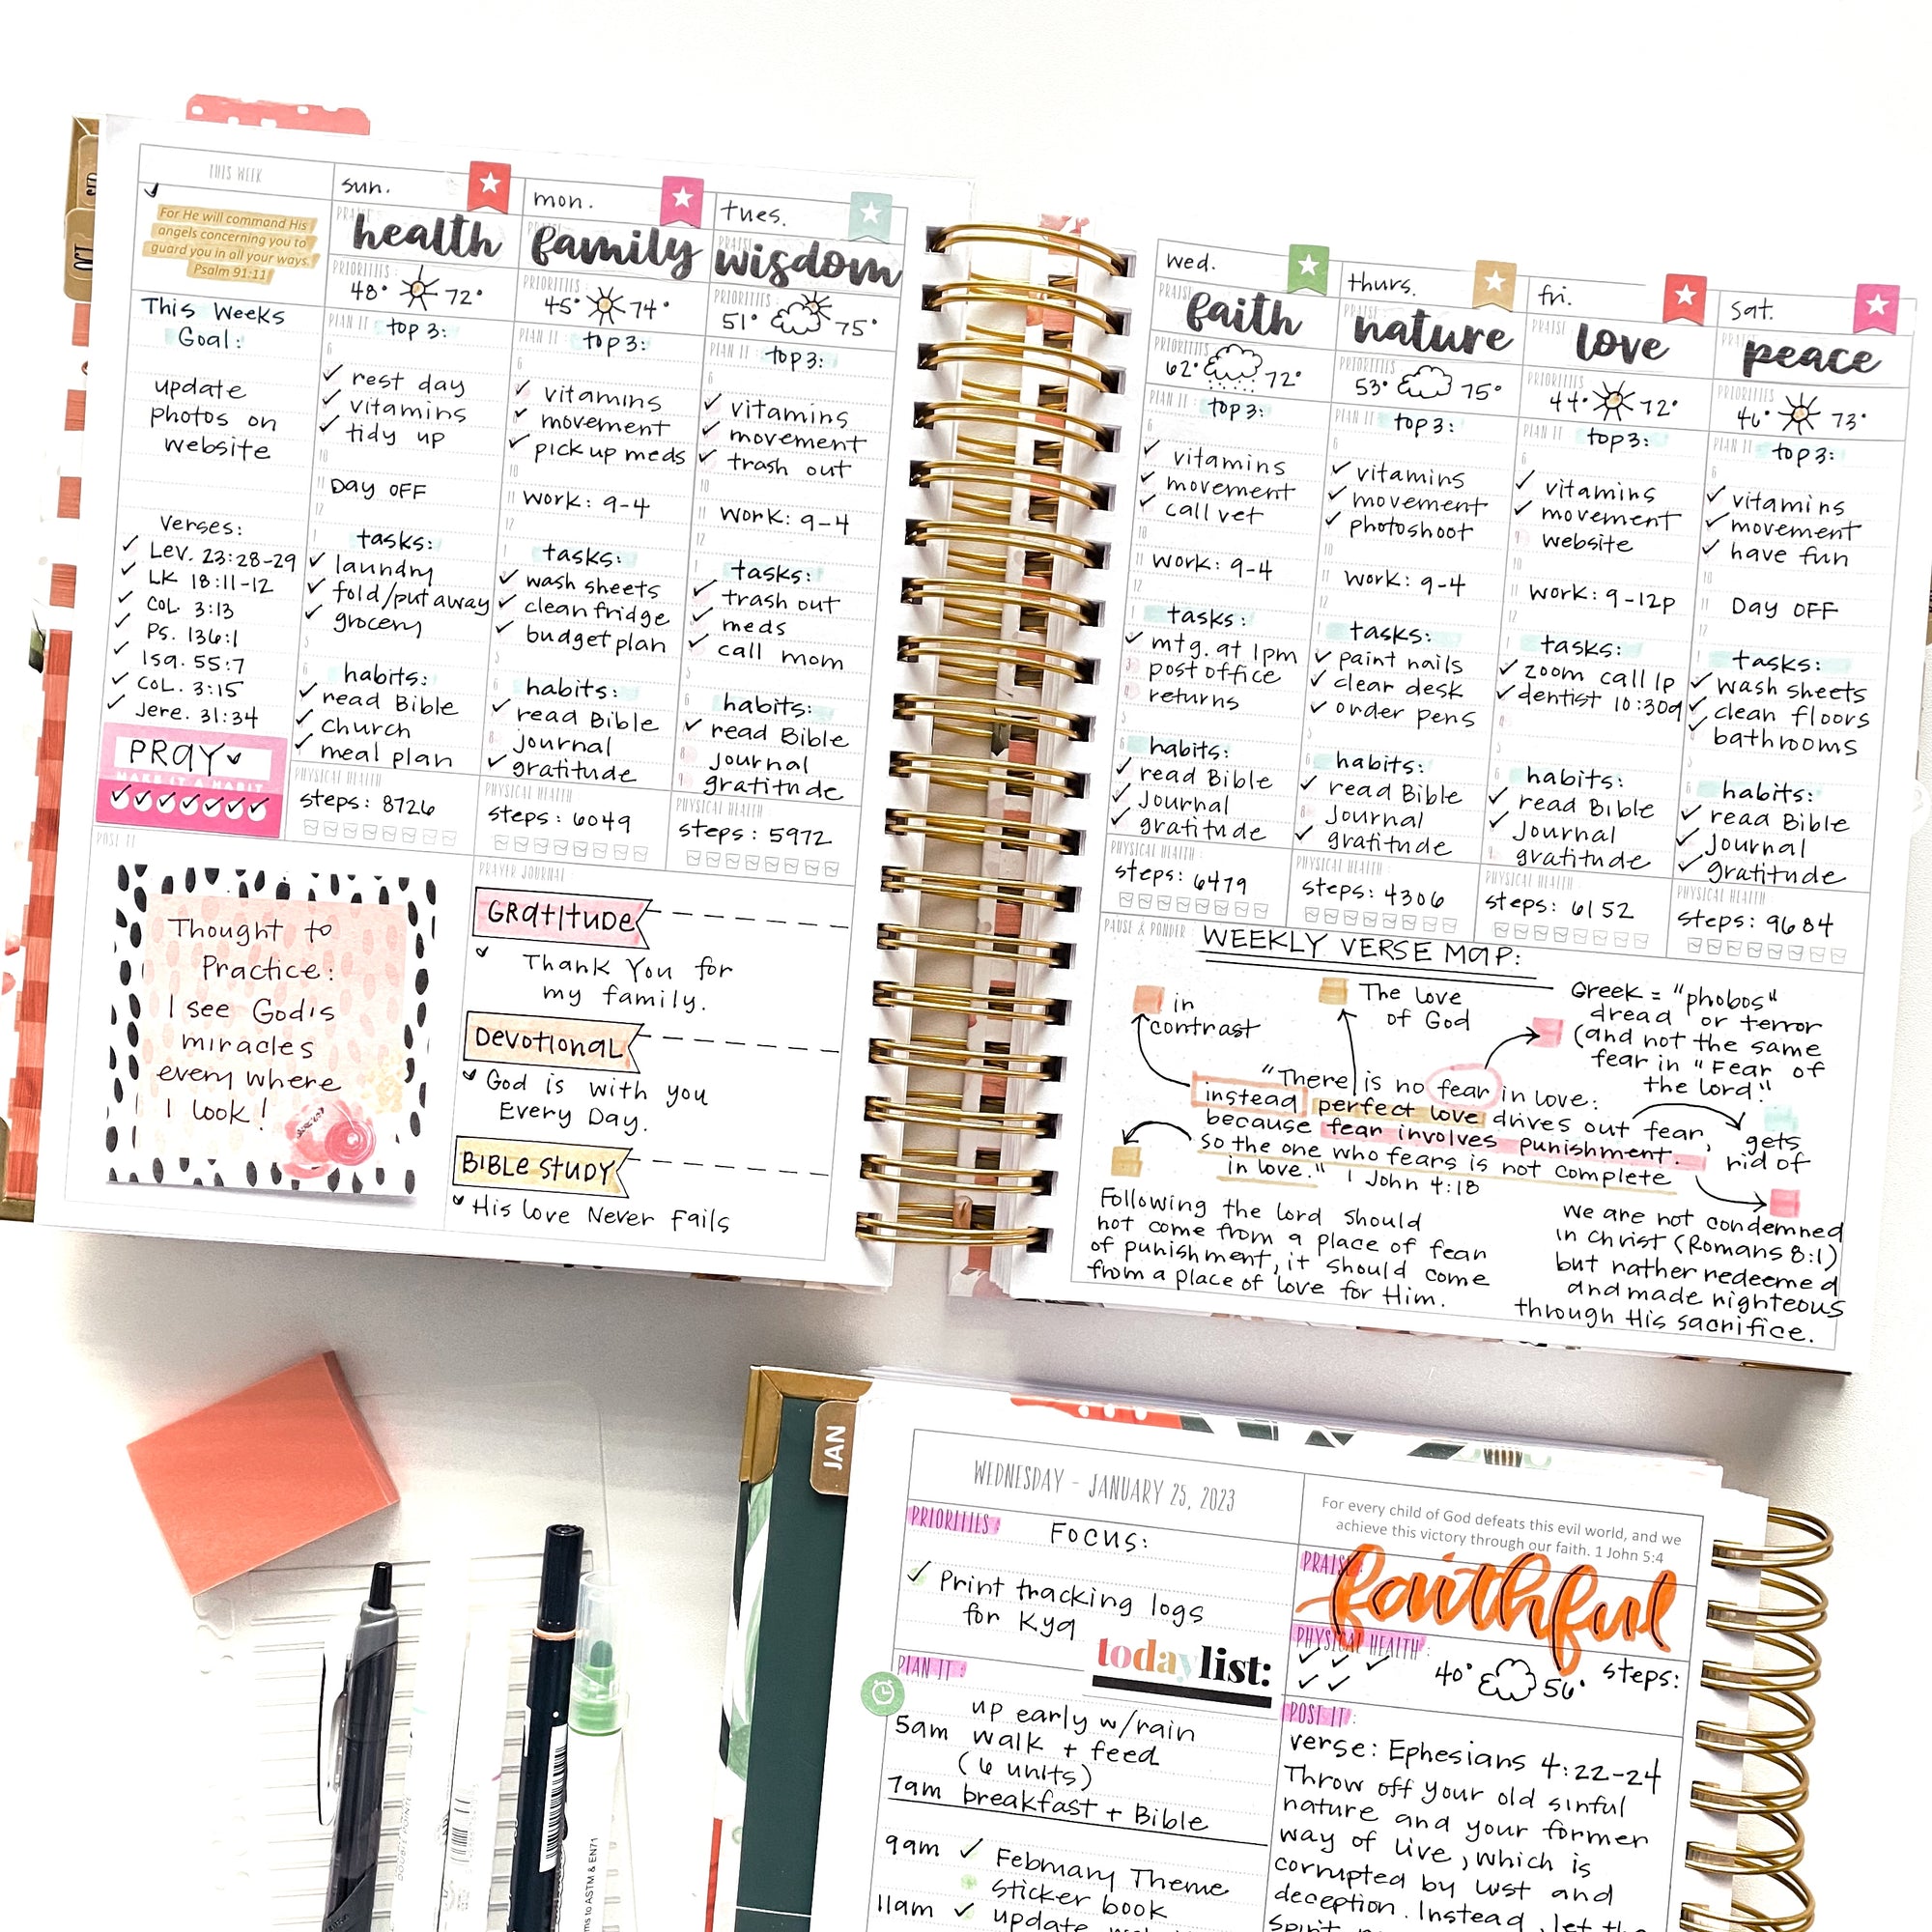 THIS WEEK
For He will command His
angels concerning you to
guard you in all your ways.
Psalm 91:11
This Weeks
Goal:
update
photos on
website
Verses:
Lev. 23:28-29
LK 18:11-12
COL. 3:13
Ps. 136:1
Isa. 55:7
COL. 3:15
Jere. 31:34
PRAY
MAKE IT A HABIT
sun.
PRAISE:
health
PRIORITIES:
48° 72°
PLAN IT: top 3:
6
rest day
vitamins
tidy up
10
11 Day OFF
12
1 tasks:
laundry
fold/put away
grocery
5
6 habits:
read Bible
church
meal plan
PHYSICAL HEALTH
steps: 8726
mon.
PRAISE:
family
PRIORITIES:
45° 74°
PLAN IT: top 3:
6
vitamins
movement
pick up meds
10
11 work: 9-4
12
1 tasks:
wash sheets
clean fridge
budget plan
5
6 habits:
read Bible
8 journal
gratitude
PHYSICAL HEALTH
steps: 6049
tues.
PRAISE:
wisdom
PRIORITIES:
51° 75°
PLAN IT: top 3:
6
vitamins
movement
trash out
10
11 work: 9-4
12
1 tasks:
trash out
meds
call mom
5
6 habits:
read Bible
8 journal
9 gratitude
PHYSICAL HEALTH
steps: 5972
POST IT
Thought to
Practice:
I see God's
miracles
every where
I look!
PRAYER JOURNAL:
GRatITUDe
Thank You for
my family.
Devotional
God is with you
Every Day.
BIBLe STUDY
His love Never Fails
wed.
PRAISE:
faith
PRIORITIES
62° 72°
PLAN IT: top 3:
6
vitamins
movement
call vet
10
11 work: 9-4
12
1 tasks:
mtg. at 1pm
3 post office
4 returns
5
6 habits:
read Bible
Journal
gratitude
PHYSICAL HEALTH:
steps: 6479
thurs.
PRAISE:
nature
PRIORITIES
53° 75°
PLAN IT: top 3:
6
vitamins
movement
photoshoot
10
11 work: 9-4
12
1 tasks:
paint nails
clear desk
order pens
5
6 habits:
read Bible
8 Journal
gratitude
PHYSICAL HEALTH:
steps: 4306
fri.
PRAISE
love
PRIORITIES
44° 72°
PLAN IT top 3:
6
vitamins
movement
9 website
10
11 work: 9-12p
12
1 tasks:
zoom call 1p
dentist 10:30a
4
5
6 habits:
read Bible
Journal
9 gratitude
PHYSICAL HEALTH:
steps: 6152
sat.
PRAISE
peace
PRIORITIES
46° 73°
PLAN IT: top 3:
6
vitamins
movement
have fun
10
11 Day OFF
12
1 tasks:
wash sheets
clean floors
bathrooms
5
6 habits:
read Bible
Journal
gratitude
PHYSICAL HEALTH
steps: 9684
PAUSE & PONDER: WEEKLY VERSE MaP:
in
contrast
The love
of God
Greek = "phobos"
dread or terror
(and not the same
fear in "Fear of
the lord."
"There is no fear in love:
instead perfect love drives out fear,
because fear involves punishment.
so the one who fears is not complete
in love." 1 John 4:18
gets
rid of
Following the lord should
not come from a place of fear
of punishment, it should come
from a place of love for Him.
we are not condemned
in Christ (Romans 8:1)
but rather redeemed
and made righteous
through His sacrifice.
JAN
WEDNESDAY - JANUARY 25, 2023
PRIORITIES: Focus:
Print tracking logs
for Kya
PLAN IT:
today list:
up early w/rain
5am walk + feed
(6 units)
7am breakfast + Bible
9am February Theme
sticker book
11am update
For every child of God defeats this evil world, and we
achieve this victory through our faith. 1 John 5:4
PRAISE:
faithful
PHYSICAL HEALTH:
40° 56° steps:
POST IT:
verse: Ephesians 4:22-24
Throw off your old sinful
nature and your former
way of live, which is
corrupted by lust and
deception. Instead, let the
ms to ASTM & EN71